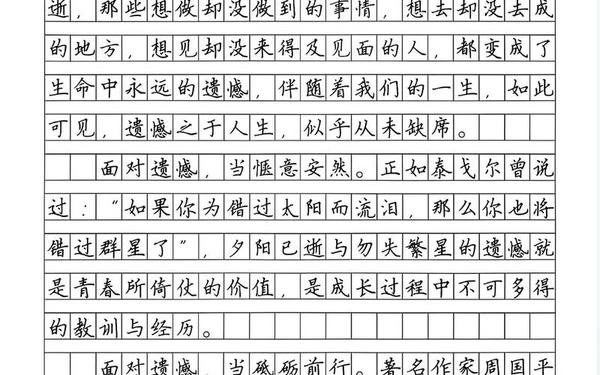 逝，那些想做却没做到的事情，想去却没去成
的地方，想见却没来得及见面的人，都变成了
生命中永远的遗憾，伴随着我们的一生，如此
可见，遗憾之于人生，似乎从未缺席。
面对遗憾，当惬意安然。正如泰戈尔曾说
过：“如果你为错过太阳而流泪，那么你也将
错过群星了”，夕阳已逝与勿失繁星的遗憾就
是青春所倚仗的价值，是成长过程中不可多得
的教训与经历。
面对遗憾，当砥砺前行。著名作家周国平